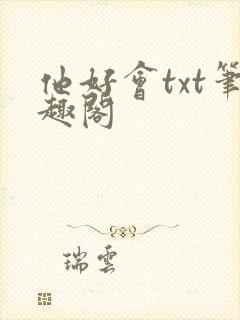 他好會txt筆
趣閣
瑞雲